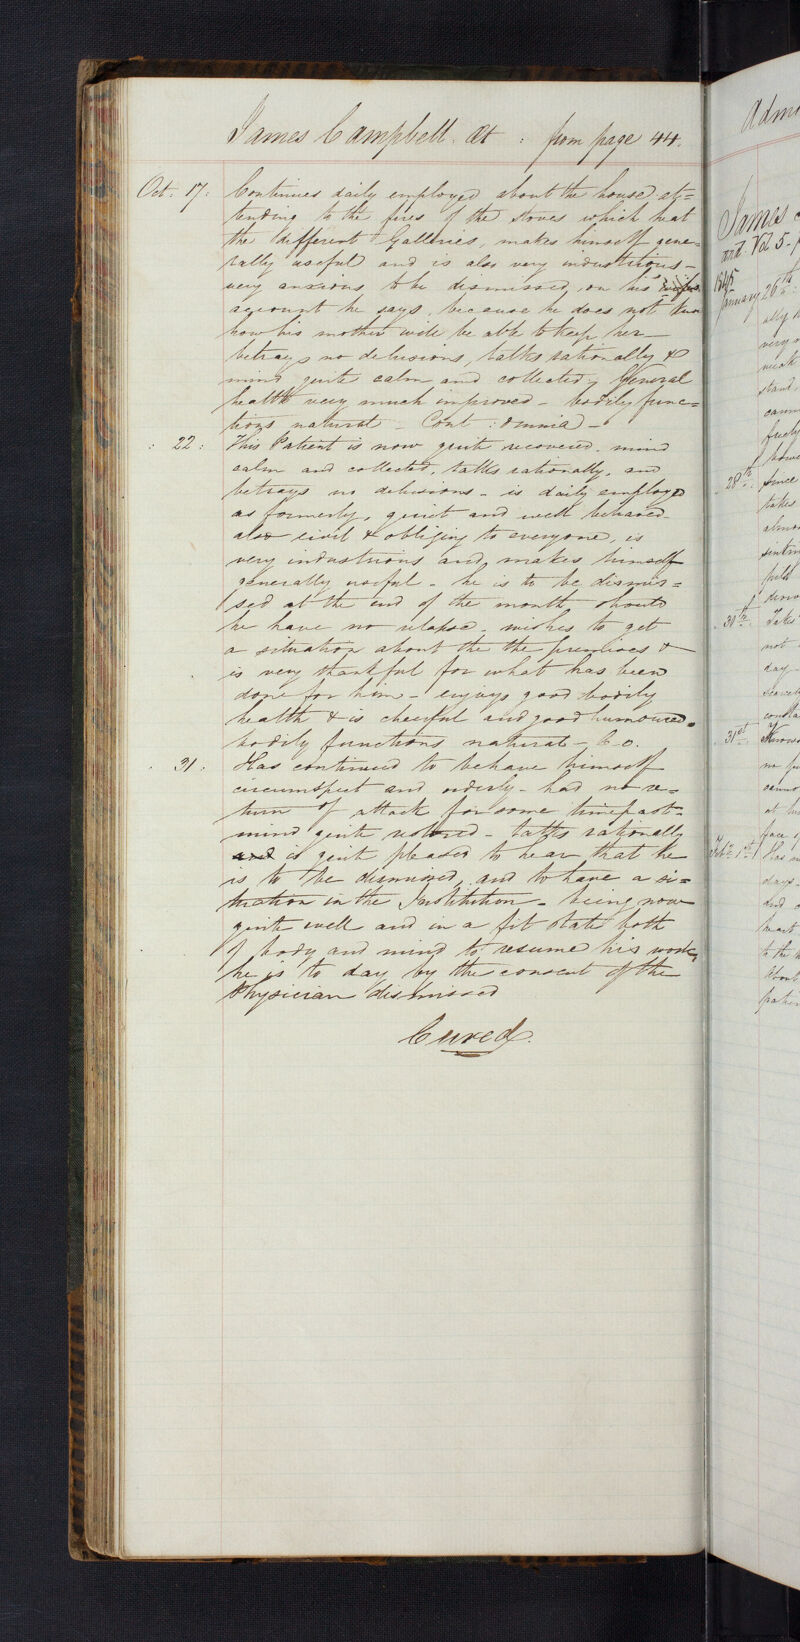 James Campbell. Æt : from page 44.
Oct: 17: Continues daily employed about the house, at=
tending to the fires of the stoves which heat
the different Galleries, makes himself gene=
rally useful and is also very industrious -
very anxious to be dismissed, on his wifes
account he says, because he does not know
how his mother will be able to keep her -
betrays no delusions, talks rationally &
mind quite calm and collected, General
health very much improved - bodily func=
tions natural - Cont: omnia -
: 22 : This Patient is now quite recovered. mind
calm and collected, talks rationally, and
betrays no delusions - is daily employed
as formerly, quiet and well behaved
also civil & obliging to everyone, is
very industrious and makes himself
generally useful - he is to be dismis=
sed at the end of the month should
he have no relapse. wishes to get
a situation about the the premises &
is very thankful for what has been
done for him - enjoys good bodily
health & is cheerful and good humoured.
bodily functions natural - C. O.
. 31 : Has continued to behave himself
circumspect and orderly - had no re=
turn of attack for some time past -
mind quite restored - talks rationally
and is quite pleased to hear that he
is to be dismissed, and to have a si=
tuation in the Institution - being now
quite well and in a fit state both
of body and mind to resume his work,
he is to day by the consent of the
Physician dismissed
Cured.
Admi
James
and. Vol 5-
1845
January 26th
ally
very
weak
stand,
cann
freely
howe
28th. since
takes
almo
30th. Takes
not
day
scarcely
consta
31st.
no
canno
at his
face
Feb. 1st. Has
days-
and
heart
to the
About
patien